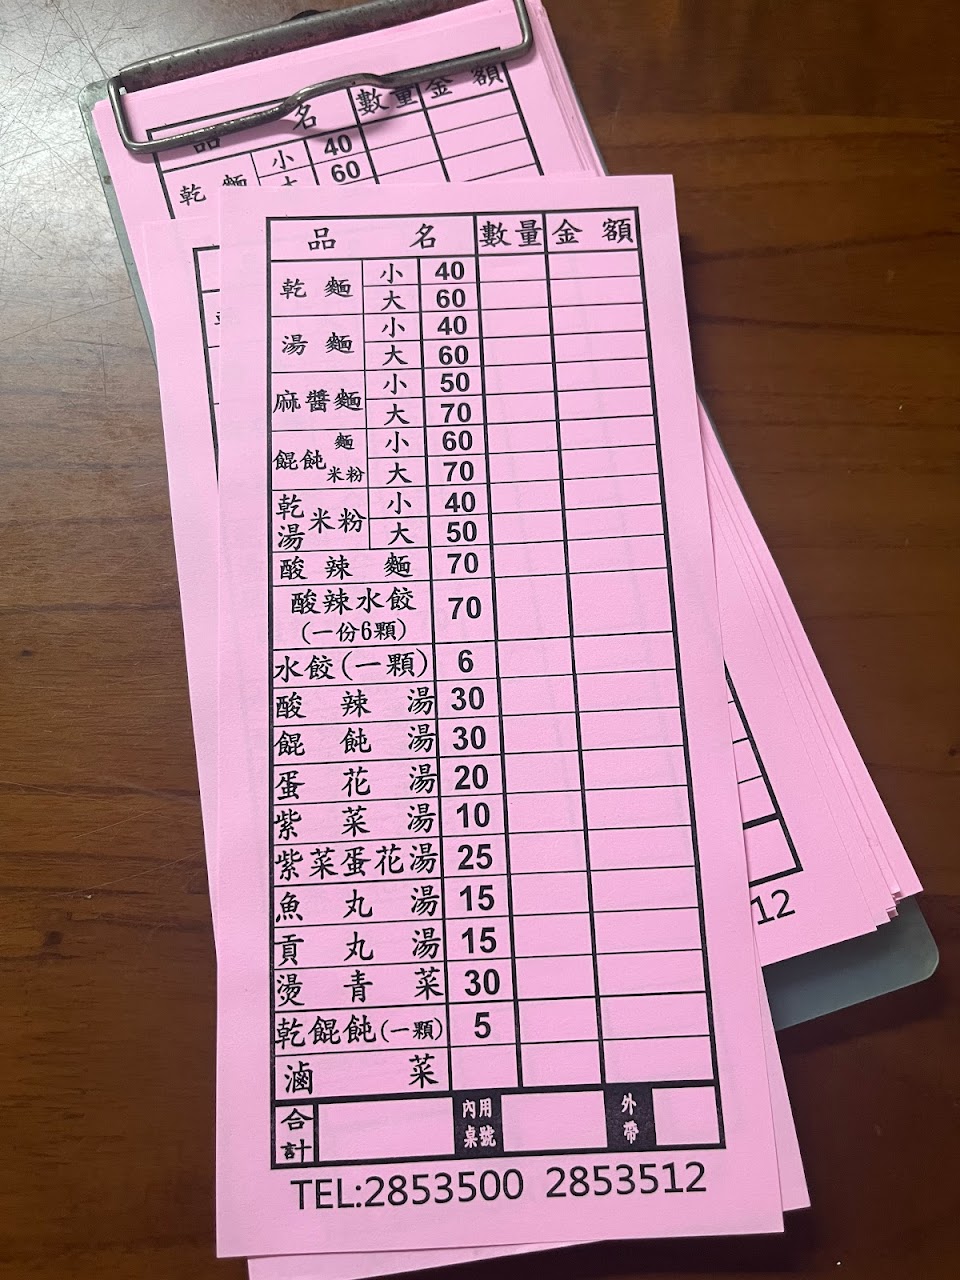 品 名 數量 金 額
乾 麵 小 40
大 60
品 名 數量 金 額
乾 麵 小 40
大 60
湯 麵 小 40
大 60
麻醬麵 小 50
大 70
餛飩 麵 米粉 小 60
大 70
乾 湯 米粉 小 40
大 50
酸 辣 麵 70
酸辣水餃 70
(一份6顆)
水餃(一顆) 6
酸 辣 湯 30
餛 飩 湯 30
蛋 花 湯 20
紫 菜 湯 10
紫菜蛋花湯 25
魚 丸 湯 15
貢 丸 湯 15
燙 青 菜 30
乾餛飩(一顆) 5
滷 菜
合計 內用桌號 外帶
TEL:2853500 2853512
12